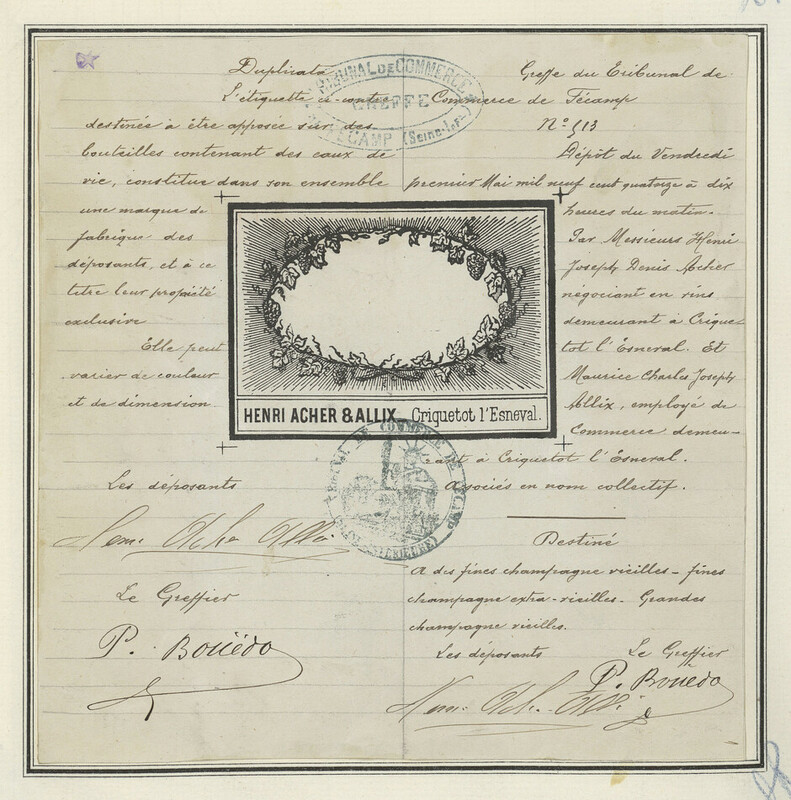 Duplicata
L'étiquette ci-contre
destinée à être apposée sur des
bouteilles contenant des eaux de
vie, constitue dans son ensemble
une marque de
fabrique des
déposants, et à ce
titre leur propriété
exclusive
Elle peut
varier de couleur
et de dimension
Les déposants
Le Greffier
P. Bouëdo
TRIBUNAL DE COMMERCE
GREFFE
FÉCAMP (Seine-Infre)
HENRI ACHER & ALLIX Criquetot l'Esneval.
TRIBUNAL DE COMMERCE DE FÉCAMP
(SEINE INFÉRIEURE)
Greffe du Tribunal de
Commerce de Fécamp
N° 513
Dépôt du Vendredi
premier Mai mil neuf cent quatorze à dix
heures du matin.
Par Messieurs Henri
Joseph Denis Acher
négociant en vins
demeurant à Crique-
tot l'Esneval. Et
Maurice Charles Joseph
Allix, employé de
Commerce demeu-
rant à Criquetot l'Esneval.
Associés en nom collectif.
Destiné
A des fines champagne vieilles - fines
champagne extra-vieilles - Grandes
champagne vieilles.
Les déposants Le Greffier
P. Bouëdo